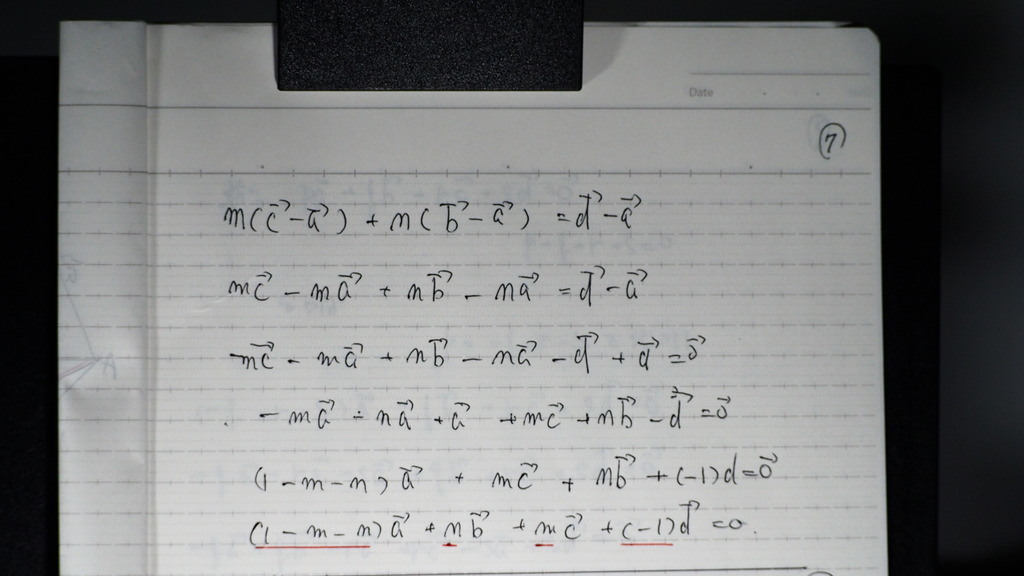 Date
⑦
m(c⃗-a⃗) + n(b⃗-a⃗) = d⃗-a⃗
mc⃗ - ma⃗ + nb⃗ - na⃗ = d⃗-a⃗
mc⃗ - ma⃗ + nb⃗ - na⃗ - d⃗ + a⃗ = 0⃗
- ma⃗ - na⃗ + a⃗ + mc⃗ + nb⃗ - d⃗ = 0⃗
(1-m-n)a⃗ + mc⃗ + nb⃗ + (-1)d = 0⃗
(1-m-n)a⃗ + nb⃗ + mc⃗ + (-1)d⃗ = 0.